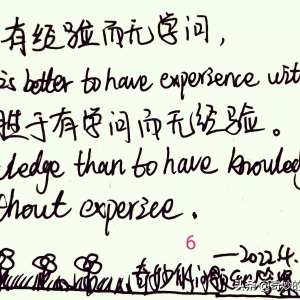 有经验而无学问,
is better to have experience wit
胜于有学问而无经验。
ledge than to have knowled
thout experiee.
6
一2022.4.
头条